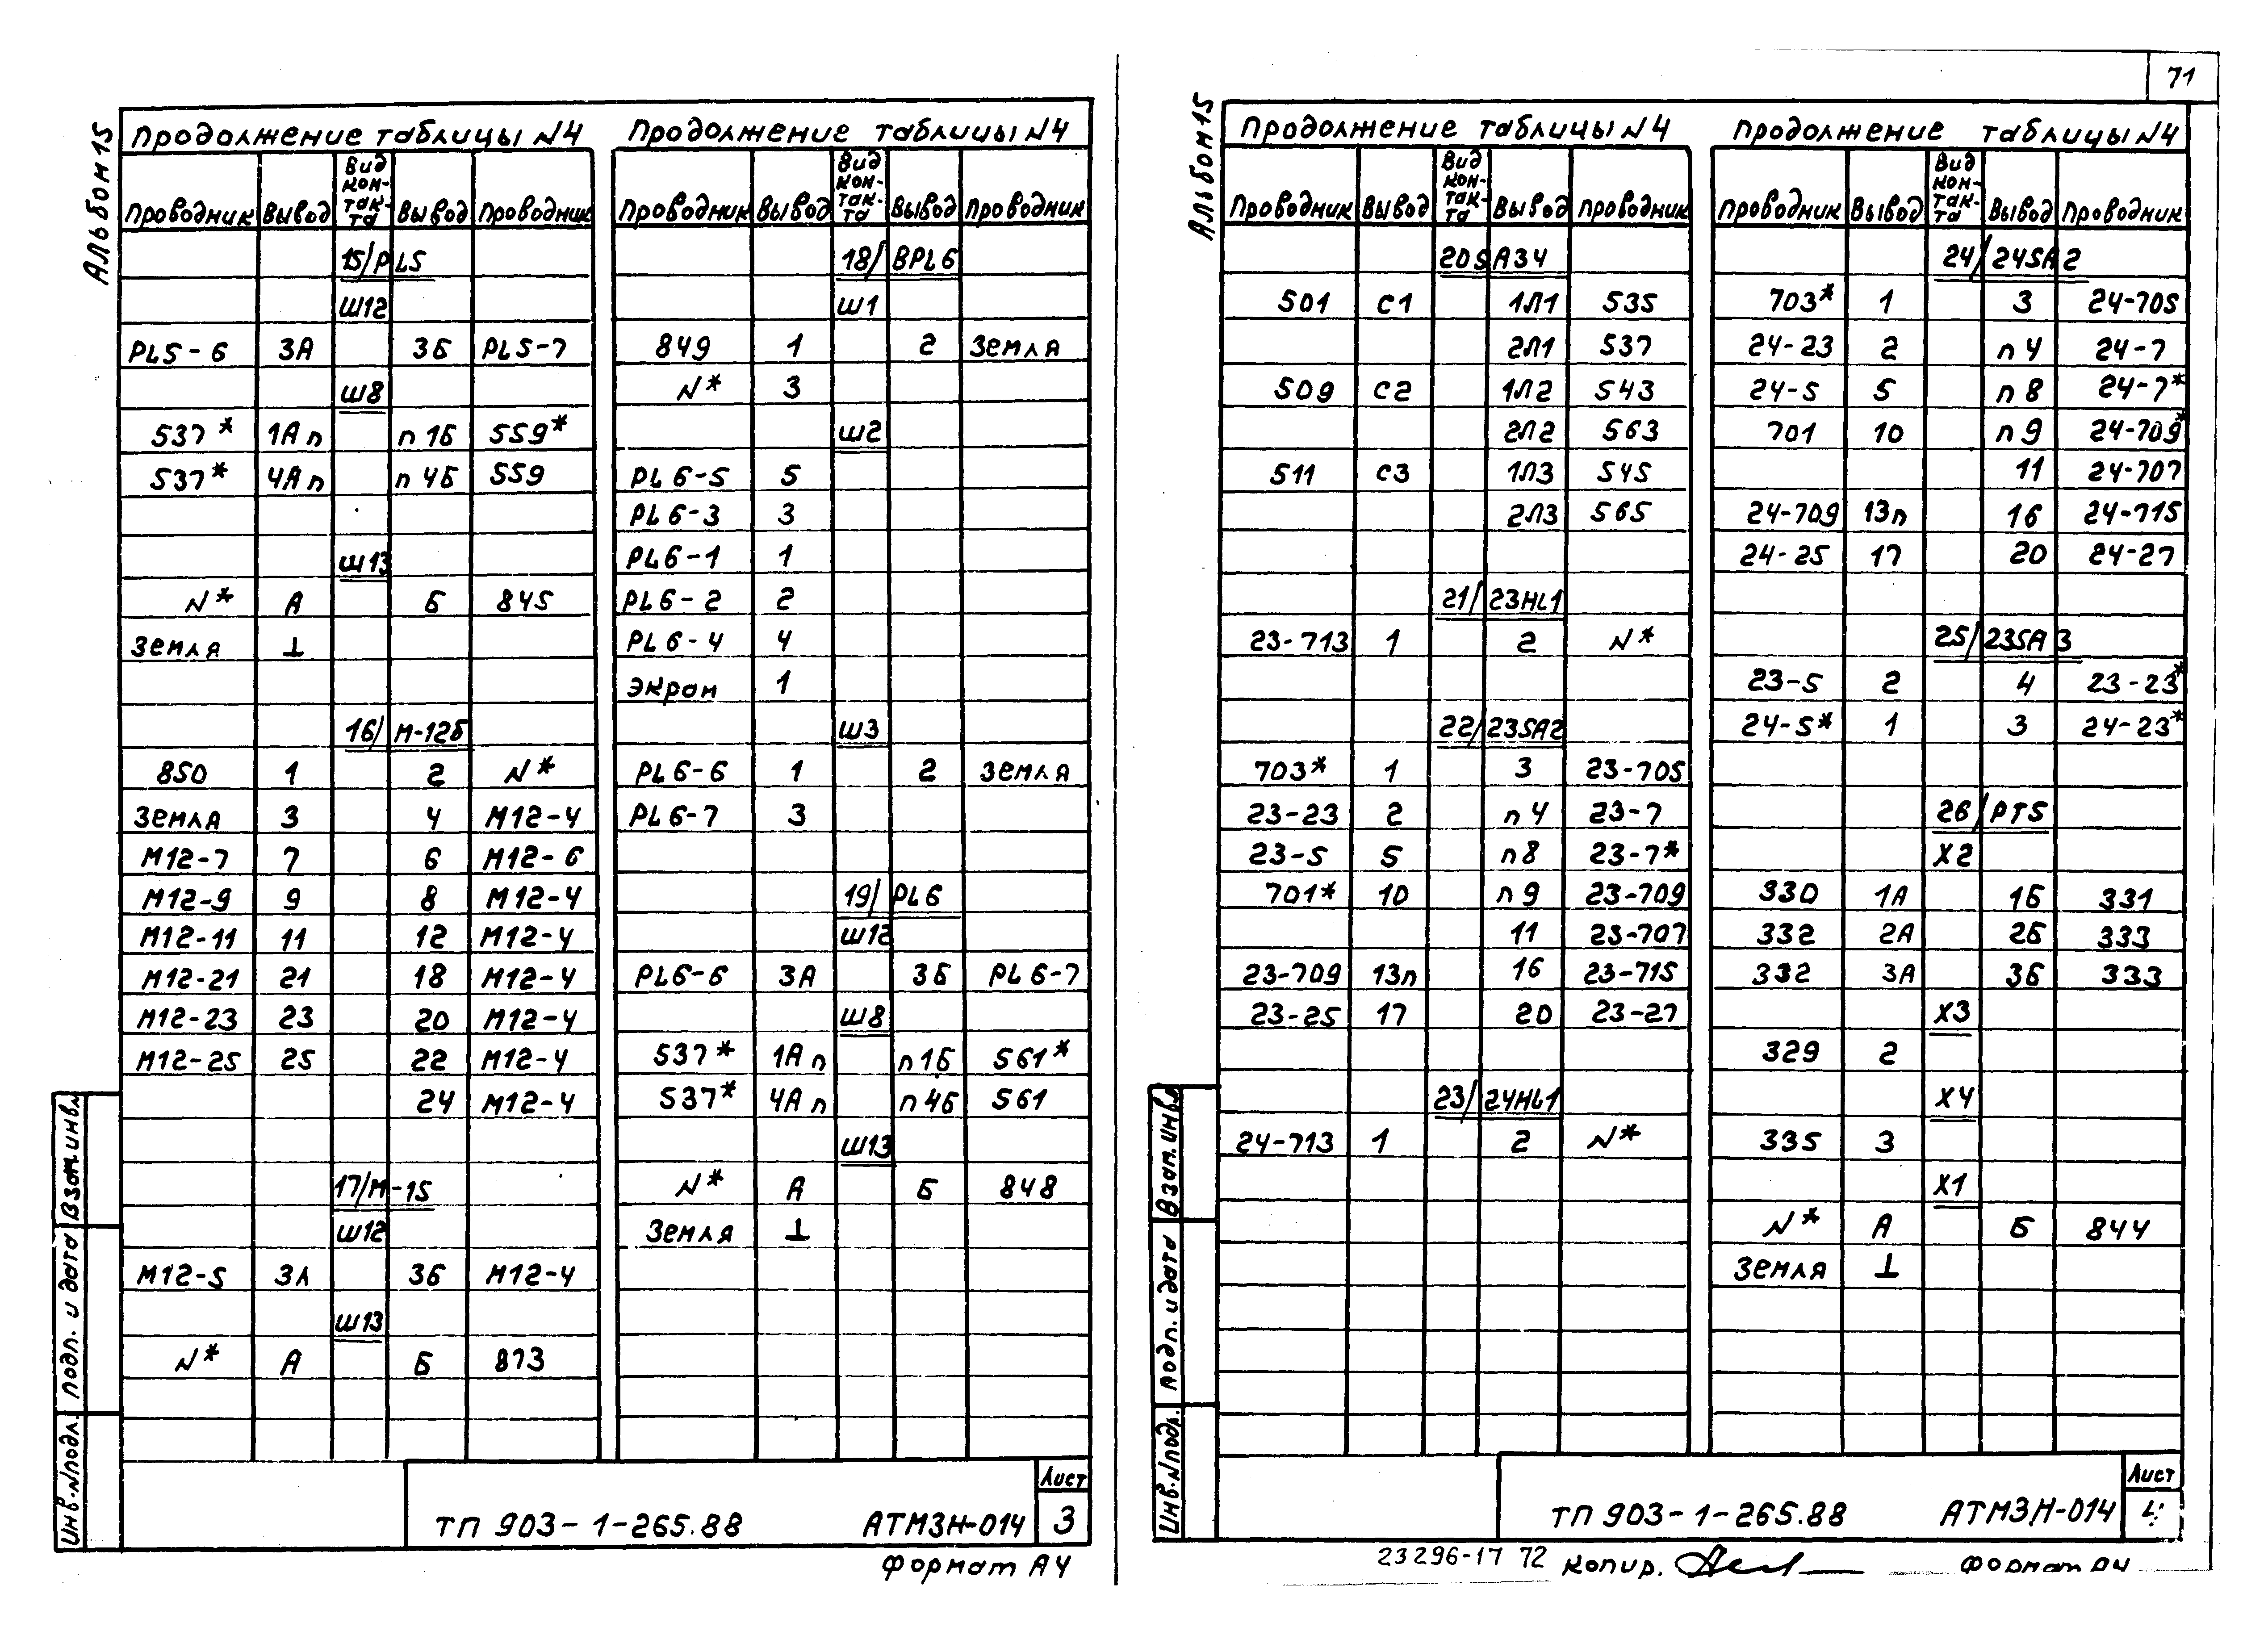 71
Альбом 15
Продолжение таблицы N4
Проводник Вывод Вид кон-так-та Вывод Проводник
15/PL5
Ш12
PL5-6 3А 3Б PL5-7
Ш8
537* 1А п п 1Б 559*
537* 4А п п 4Б 559
Ш13
N* А Б 845
Земля ⊥
16/М-12Б
850 1 2 N*
Земля 3 4 М12-4
М12-7 7 6 М12-6
М12-9 9 8 М12-4
М12-11 11 12 М12-4
М12-21 21 18 М12-4
М12-23 23 20 М12-4
М12-25 25 22 М12-4
24 М12-4
17/М-15
Ш12
М12-5 3А 3Б М12-4
Ш13
N* А Б 873
Продолжение таблицы N4
Проводник Вывод Вид кон-так-та Вывод Проводник
18/ВPL6
Ш1
849 1 2 Земля
N* 3
Ш2
PL6-5 5
PL6-3 3
PL6-1 1
PL6-2 2
PL6-4 4
Экран 1
Ш3
PL6-6 1 2 Земля
PL6-7 3
19/PL6
Ш12
PL6-6 3А 3Б PL6-7
Ш8
537* 1А п п 1Б 561*
537* 4А п п 4Б 561
Ш13
N* А Б 848
Земля ⊥
Взам. инв.
Подп. и дата
Инв. N подл.
ТП 903-1-265.88 АТМ3Н-014
Лист
3
Формат А4
Альбом 15
Продолжение таблицы N4
Проводник Вывод Вид кон-так-та Вывод Проводник
20SA34
501 С1 1Л1 535
2Л1 537
509 С2 1Л2 543
2Л2 563
511 С3 1Л3 545
2Л3 565
21/23HL1
23-713 1 2 N*
22/23SA2
703* 1 3 23-705
23-23 2 п 4 23-7
23-5 5 п 8 23-7*
701* 10 п 9 23-709
11 23-707
23-709 13п 16 23-715
23-25 17 20 23-27
23/24HL1
24-713 1 2 N*
Продолжение таблицы N4
Проводник Вывод Вид кон-так-та Вывод Проводник
24/24SA2
703* 1 3 24-705
24-23 2 п 4 24-7
24-5 5 п 8 24-7*
701 10 п 9 24-709*
11 24-707
24-709 13п 16 24-715
24-25 17 20 24-27
25/23SA3
23-5 2 4 23-23*
24-5* 1 3 24-23*
26/РТ5
Х2
330 1А 1Б 331
332 2А 2Б 333
332 3А 3Б 333
Х3
329 2
Х4
335 3
Х1
N* А Б 844
Земля ⊥
Взам. инв.
Подп. и дата
Инв. N подл.
ТП 903-1-265.88 АТМ3Н-014
Лист
4
23296-17 72 Копир. Формат А4